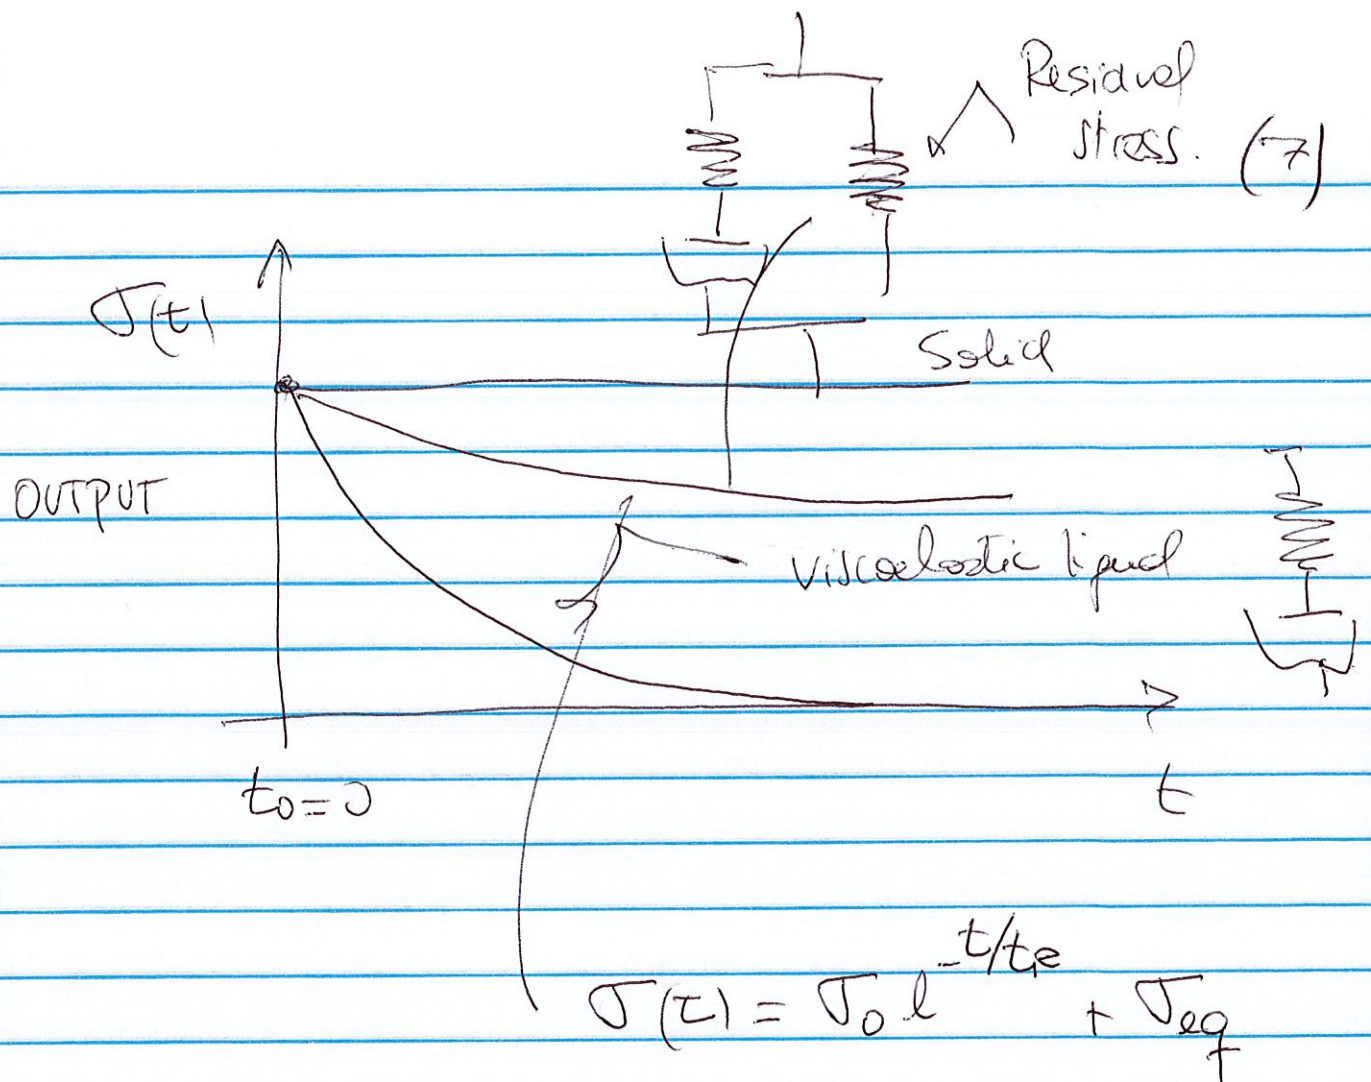 Residual
stress. (7)
σ(t)
Solid
OUTPUT
Viscoelastic liquid
t₀=0
t
σ(t) = σ₀ e^-t/tre + σeq